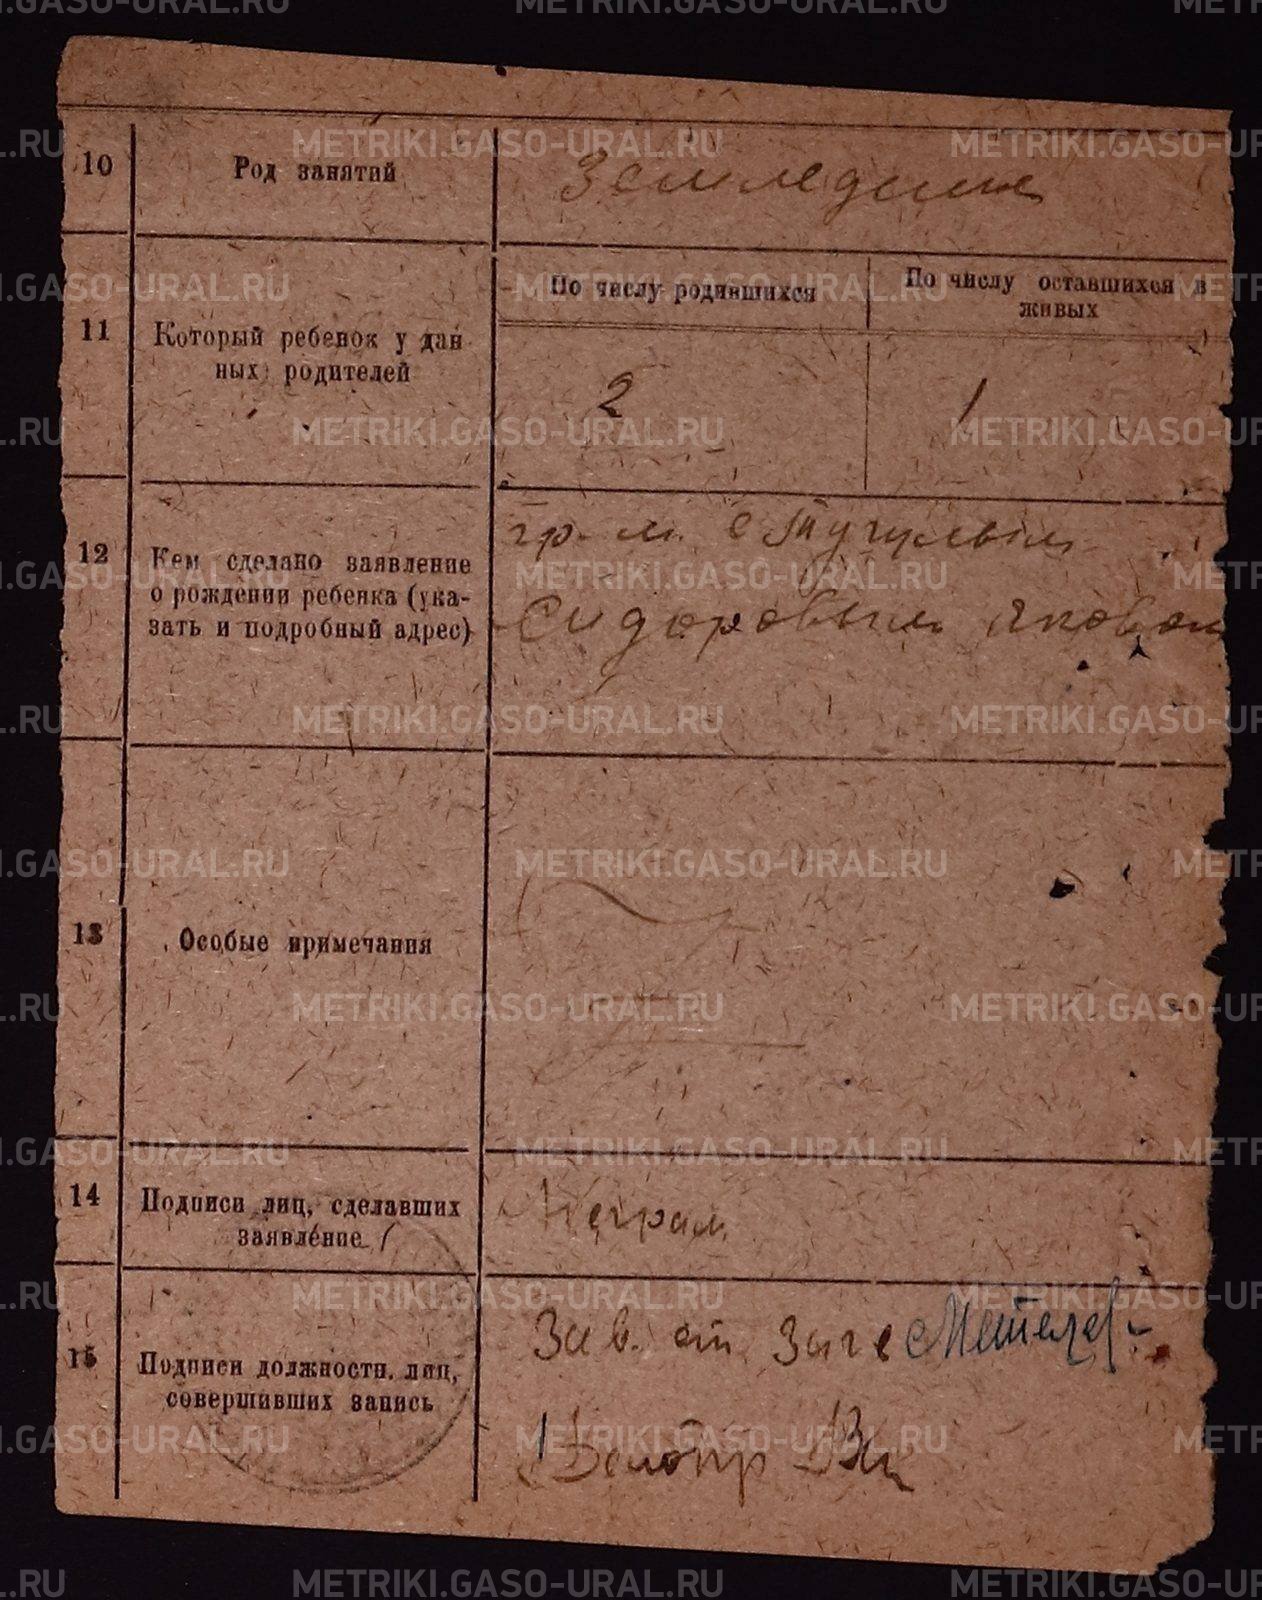 10
Род занятий
Земледелие
11
Который ребенок у дан
ных родителей
По числу родившихся
По числу оставшихся в
живых
2
1
12
Кем сделано заявление
о рождении ребенка (ука-
зать и подробный адрес)
гр-м. с Тугулым
Сидоровым Яковом
13
Особые примечания
14
Подписи лиц, сделавших
заявление
Неграм.
15
Подписи должностн. лиц,
совершивших запись
Зав.
Делопр
METRIKI.GASO-URAL.RU